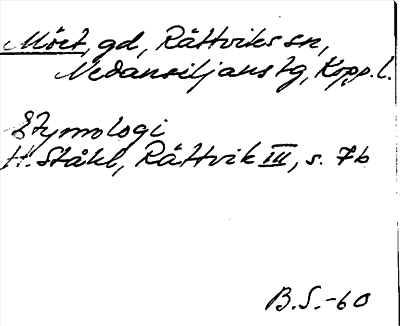 Mört, gd, Rättviks sn,
Nedansiljans tg, Kopp. l.
Etymologi
H. Ståhl, Rättvik III, s. 76
B.S.-60